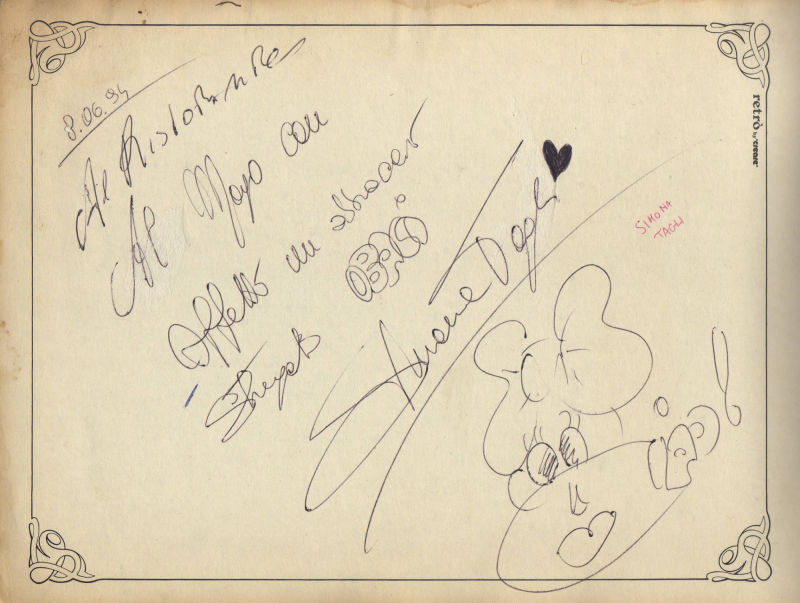 8.06.94
Al Ristorante
Al Moro con
Affetto un abbraccio
Stregato
Simona Tagli
SIMONA
TAGLI
retrò by "creare"